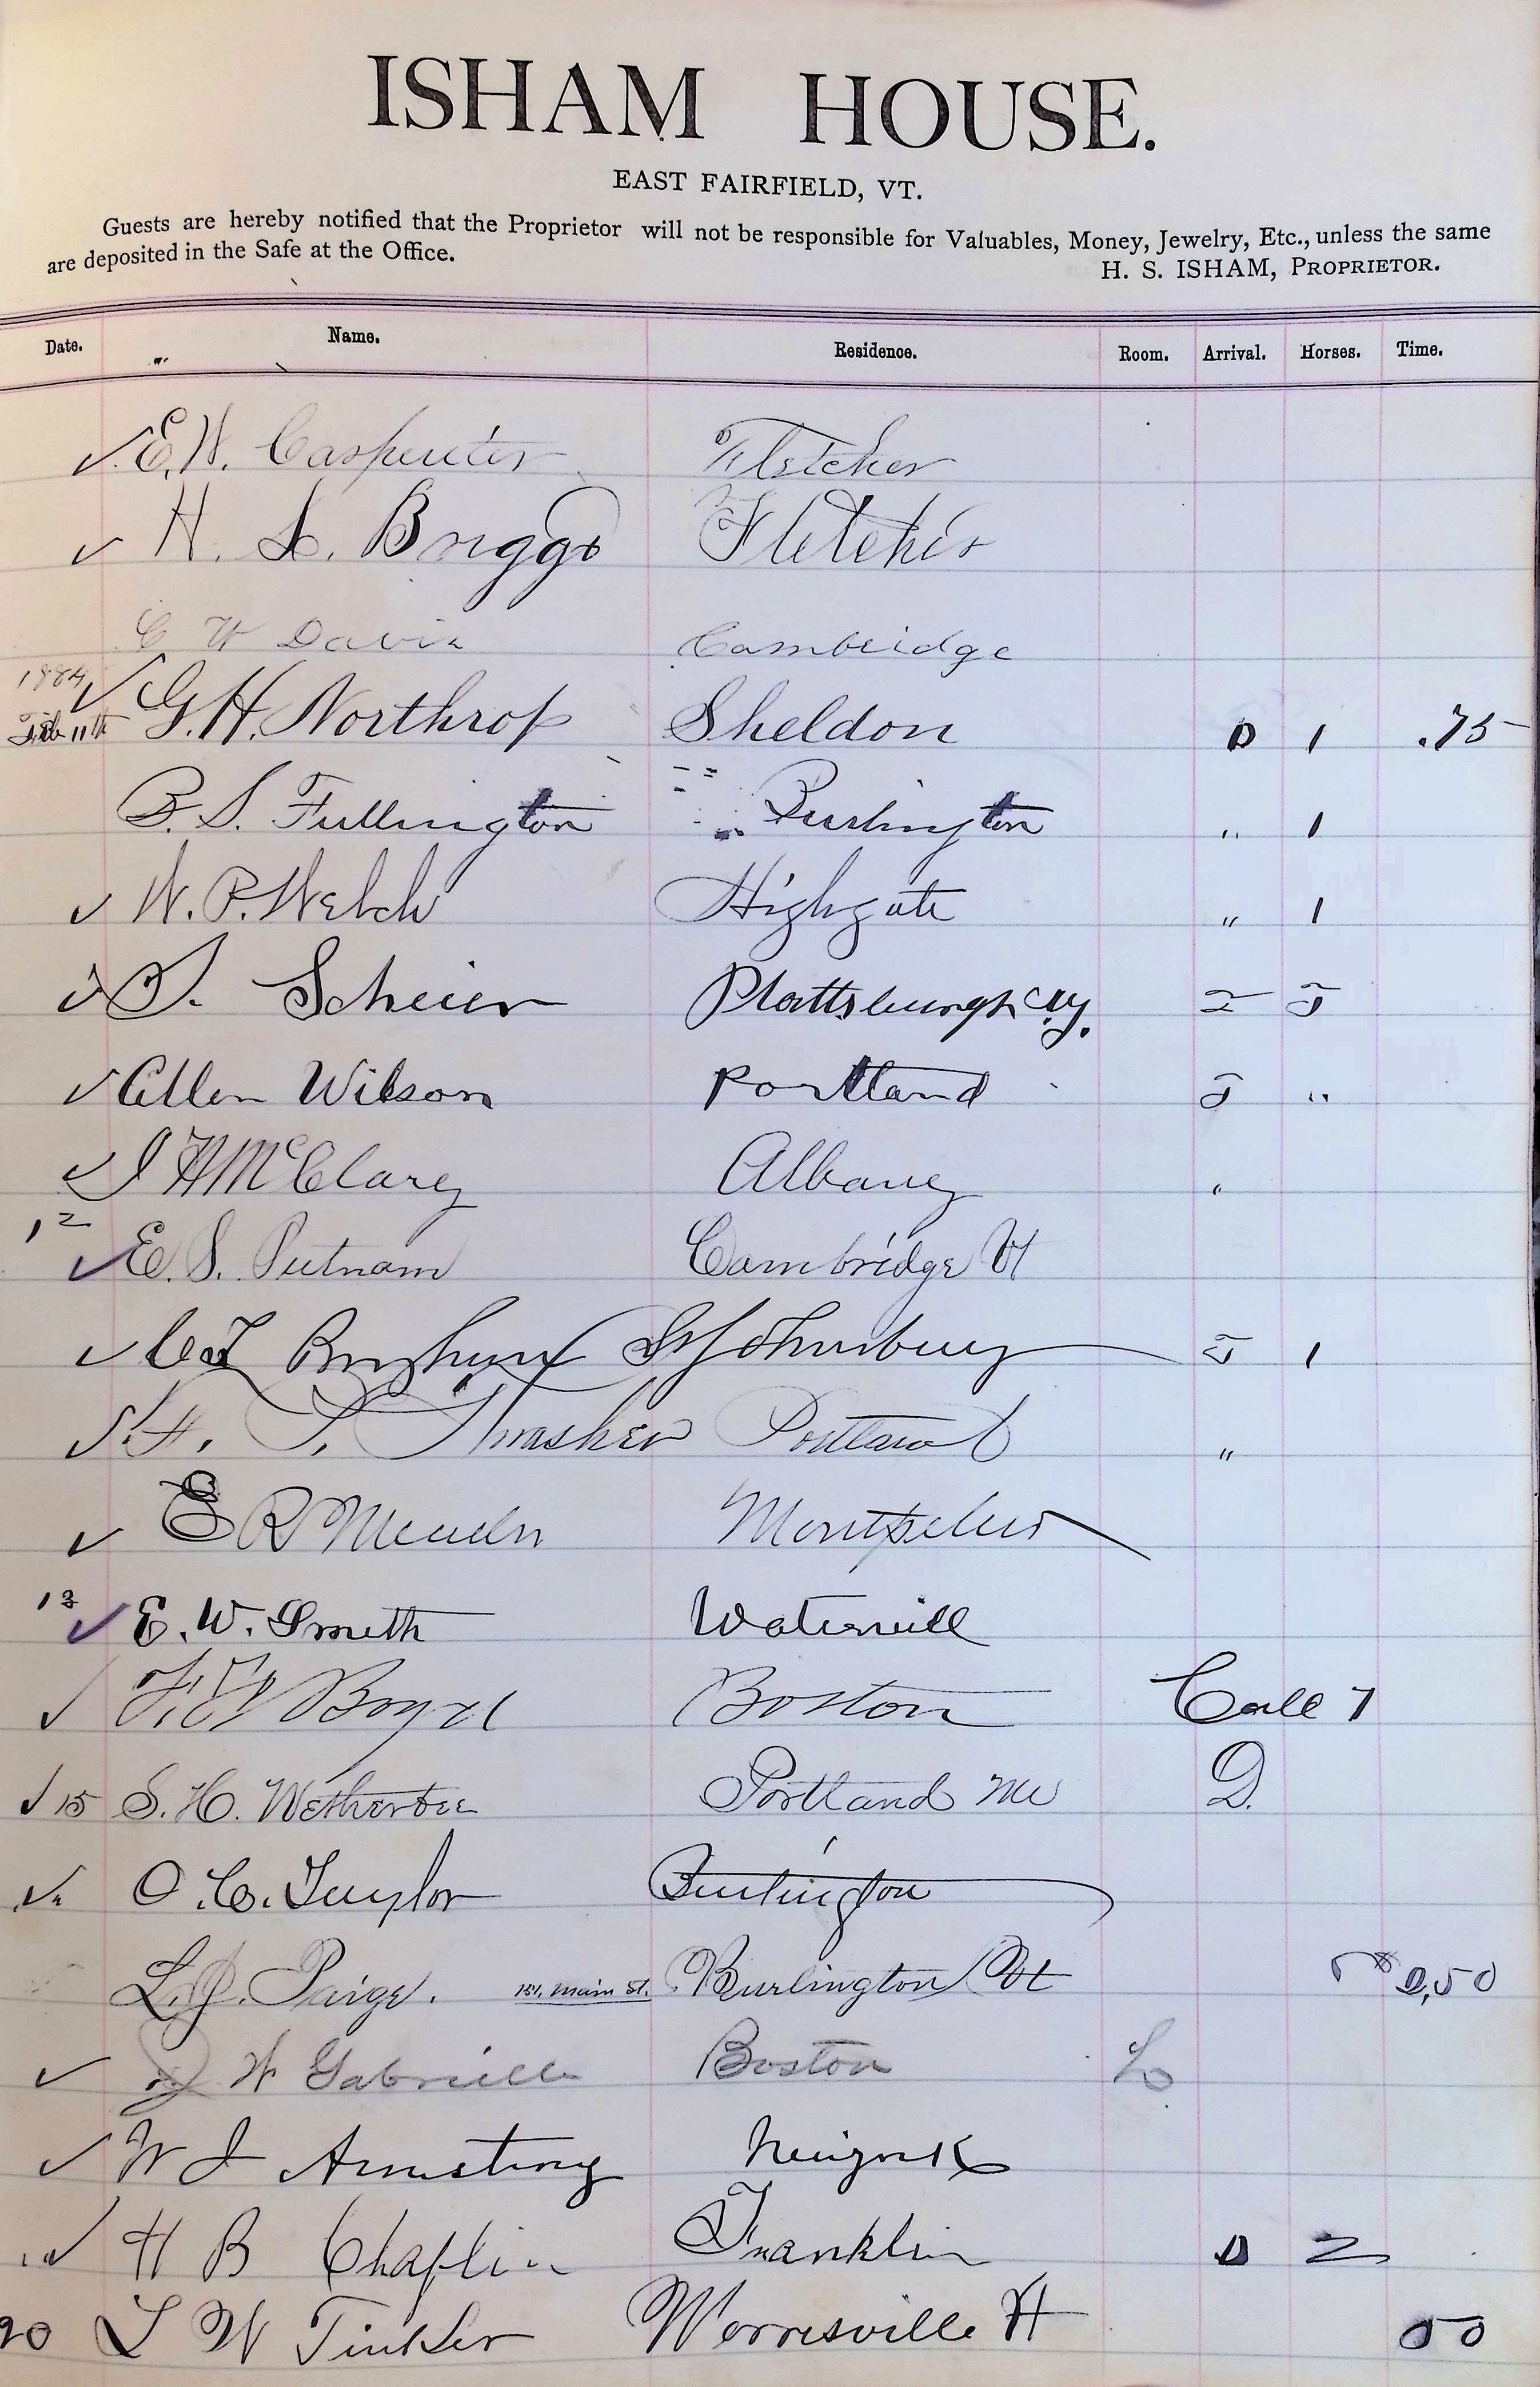 ISHAM HOUSE.
EAST FAIRFIELD, VT.
Guests are hereby notified that the Proprietor will not be responsible for Valuables, Money, Jewelry, Etc., unless the same
are deposited in the Safe at the Office.
H. S. ISHAM, PROPRIETOR.
Date. Name. Residence. Room. Arrival. Horses. Time.
E. W. Carpenter Fletcher
H. L. Briggs Fletcher
C W Davis Cambridge
1884
Feb 11th G. H. Northrop Sheldon D 1 .75
B. S. Fullington Burlington " 1
W. P. Welch Highgate " 1
S. Scheier Plattsburgh N.y.
Allen Wilson Portland "
J H McClary Albany "
12
E. S. Putnam Cambridge Vt
Brigham St Johnsbury 1
F. P. Thrasher Portland "
E R Montpelier
13
E. W. Smith Waterville
Boyd Boston Call 7
15 S. H. Wetherbee Portland Me D.
O. C. Taylor Burlington
L. J. Paige. 151, Main St. Burlington Vt 2,50
W Gabrielle Boston L
W J Armstrong Newyork
H B Chaplin Franklin D 2
20 L W Tinker Morrisville Vt 50